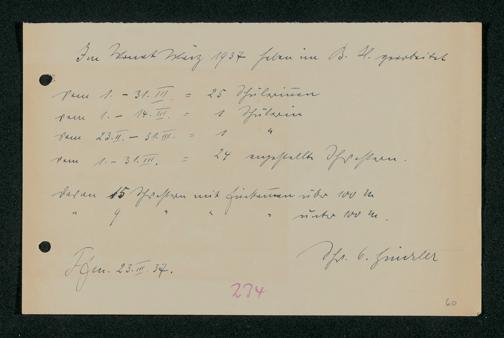 Im Monat März 1937 haben im B. H. gearbeitet
vom 1. - 31. III. = 25 Schülerinnen
vom 1. - 14. III. = 1 Schülerin
vom 23. II. - 31. III. = 1 "
vom 1. - 31. III. = 24 angestellte Schwestern.
davon 15 Schwestern mit Einkommen über 100 M
" 9 " " " unter 100 M.
Ffm. 23. III. 37.
Schw. E.
274
60